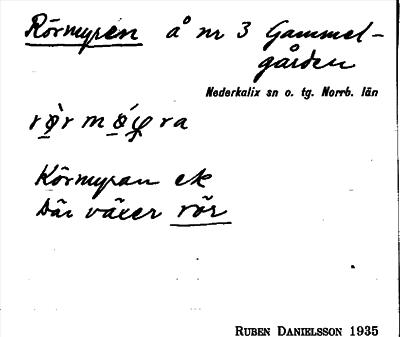 Rörmyren å nr 3 Gammel-
gården
Nederkalix sn o. tg. Norrb. län
Rörmyran ek
Där växer rör
RUBEN DANIELSSON 1935